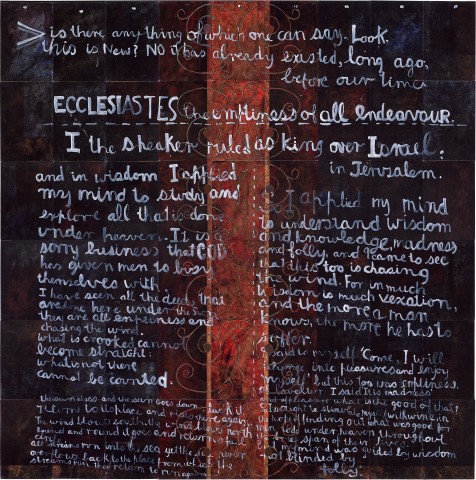 > is there anything of which one can say. Look
this is New? NO it has already existed, long ago,
before our time
ECCLESIASTES the emptiness of all endeavour.
I the speaker ruled as king over Israel.
in Jerusalem.
and in wisdom I applied
my mind to study and
explore all that is done
under heaven. It is a
sorry business that GOD
has given men to busy
themselves with
I have seen all the deeds that
are done here under the sun
they are all emptiness and
chasing the wind.
what is crooked cannot
become straight:
what is not there
cannot be counted.
the sun rises and the sun goes down
return to its place and rises there again.
The wind blows south, the wind blows north
round and round it goes and returns full
circle.
all streams run into the sea yet the sea never
overflows back to the place from which the
streams run they return to run again
I applied my mind
to understand wisdom
and knowledge, madness
and folly, and I came to see
that this too is chasing
the wind. For in much
wisdom is much vexation,
and the more a man
knows, the more he has to
suffer.
I said to myself 'Come, I will
plunge into pleasures and enjoy
myself' but this too was emptiness.
of laughter I said It is madness'
and of pleasure what is the good of that?
I sought to stimulate myself with wine in
hope of finding out what was good for
men to do under heaven throughout
the span of their lives
mind was guided by wisdom
not blinded by
folly.